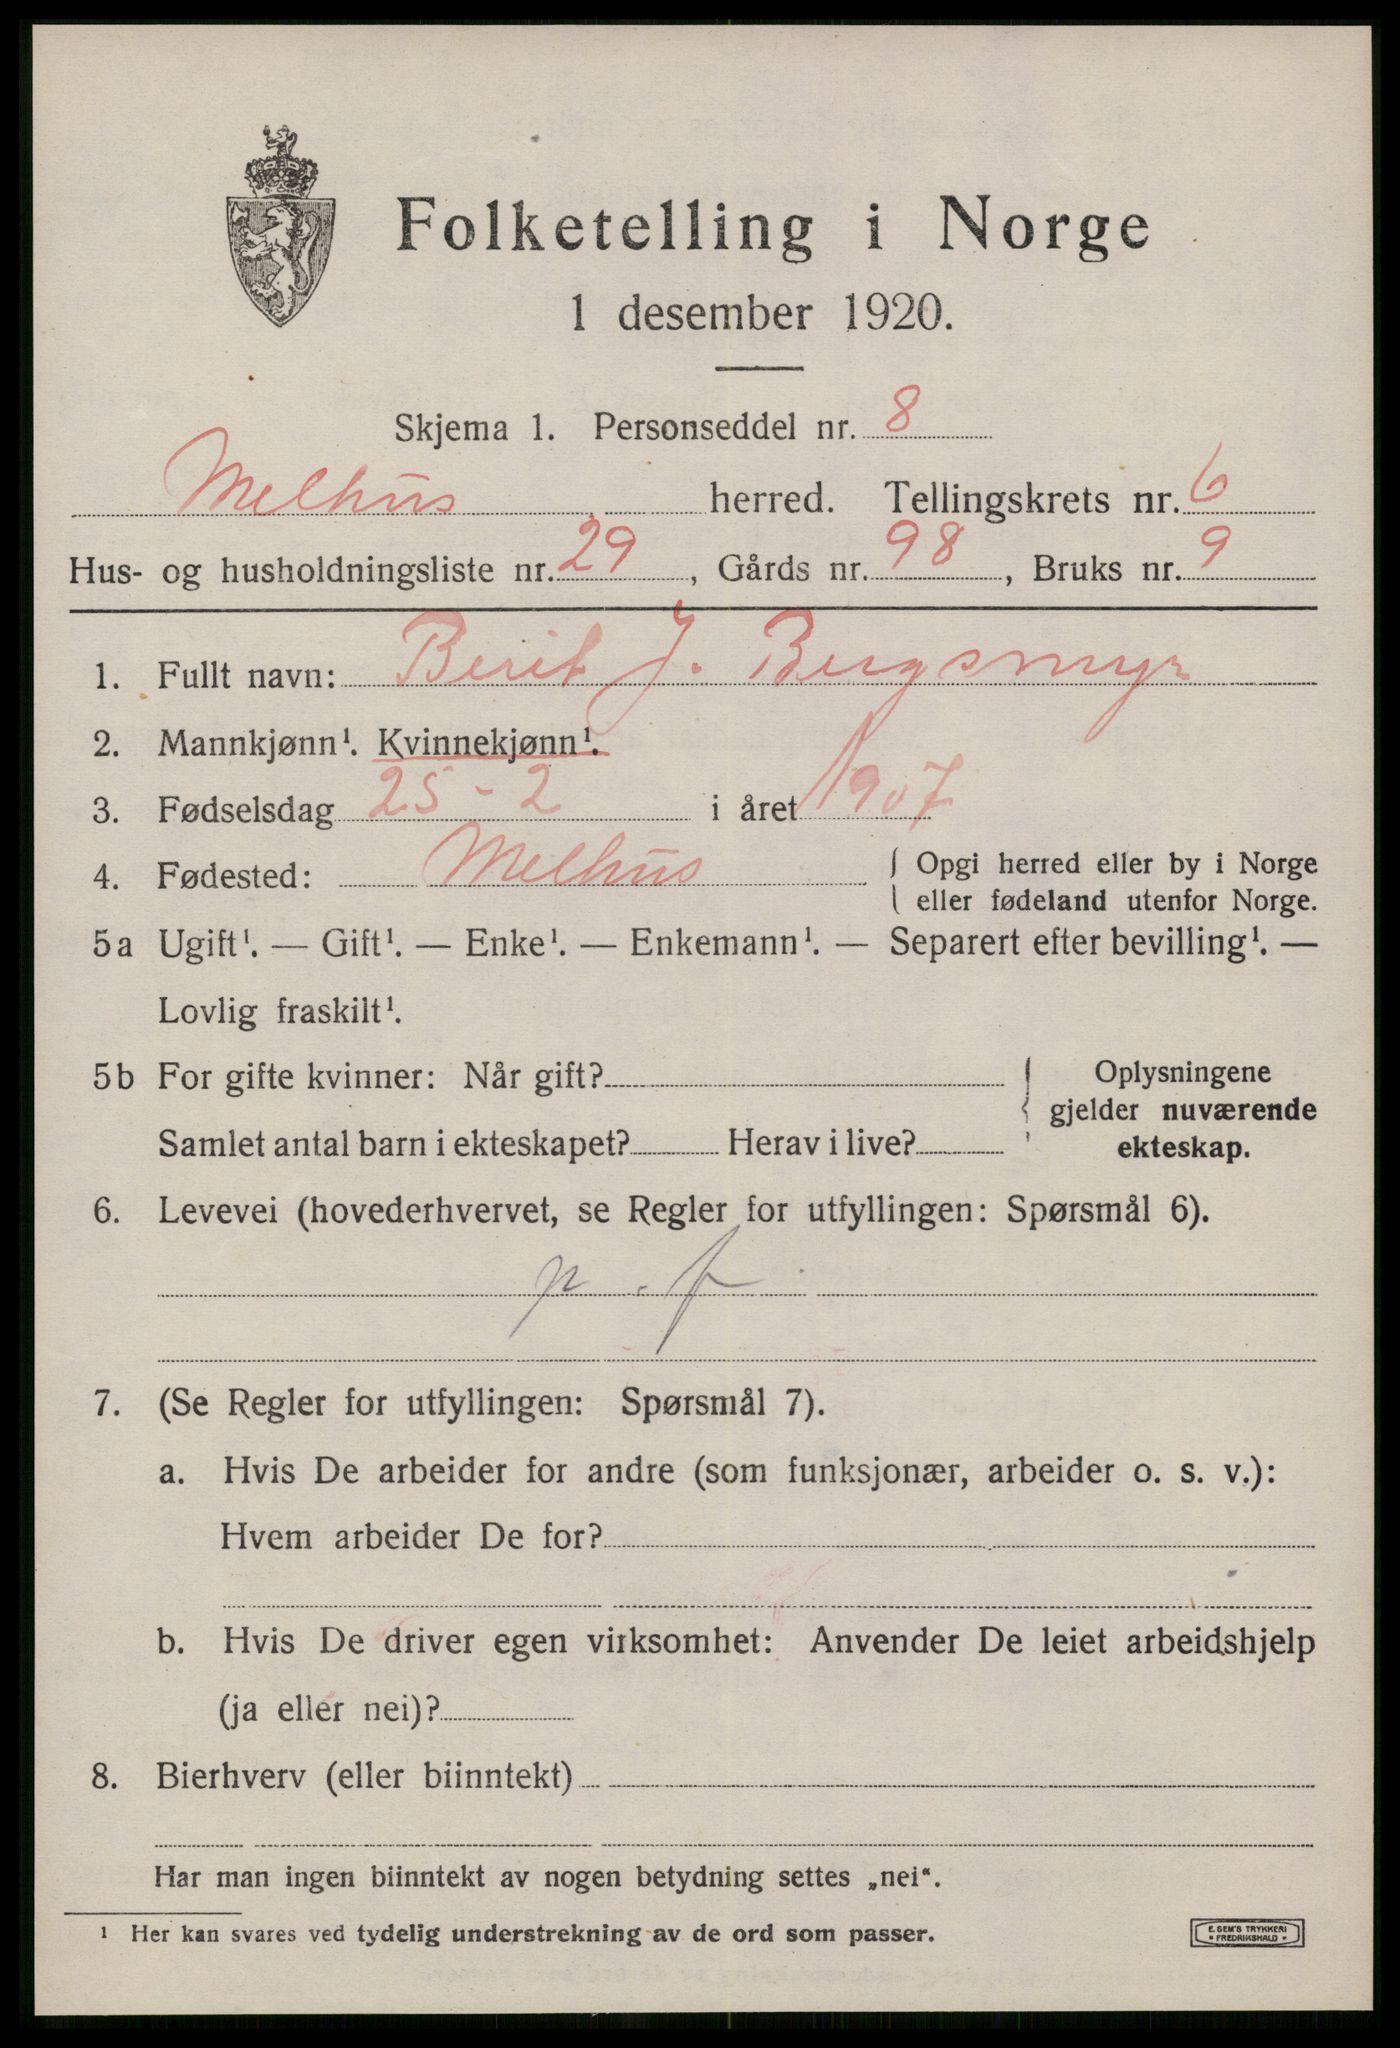 Folketelling i Norge
1 desember 1920.
Skjema 1. Personseddel nr. 8
Melhus herred. Tellingskrets nr. 6
Hus- og husholdningsliste nr. 29, Gårds nr. 98, Bruks nr. 9
1. Fullt navn: Berit J. Bergsmyr
2. Mannkjønn¹. Kvinnekjønn¹.
3. Fødselsdag 25-2 i året 1907
4. Fødested: Melhus { Opgi herred eller by i Norge
eller fødeland utenfor Norge.
5a Ugift¹. — Gift¹. — Enke¹. — Enkemann¹. — Separert efter bevilling¹. —
Lovlig fraskilt¹.
5b For gifte kvinner: Når gift?
Samlet antal barn i ekteskapet? Herav i live?
Oplysningene
gjelder nuværende
ekteskap.
6. Levevei (hovederhvervet, se Regler for utfyllingen: Spørsmål 6).
p. f
7. (Se Regler for utfyllingen: Spørsmål 7).
a. Hvis De arbeider for andre (som funksjonær, arbeider o. s. v.):
Hvem arbeider De for?
b. Hvis De driver egen virksomhet: Anvender De leiet arbeidshjelp
(ja eller nei)?
8. Bierhverv (eller biinntekt)
Har man ingen biinntekt av nogen betydning settes „nei“.
¹ Her kan svares ved tydelig understrekning av de ord som passer.
E. SEM'S TRYKKERI
* FREDRIKSHALD *